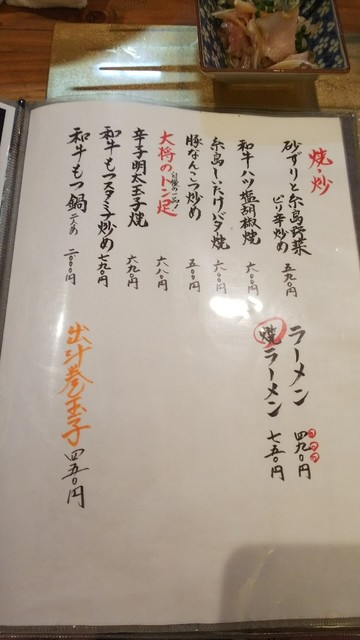 焼・炒
砂ずりと糸島野菜
ピリ辛炒め 五九〇円
和牛ハツ塩胡椒焼 六〇〇円
糸島しいたけバタ焼 六〇〇円
豚なんこつ炒め 五〇〇円
大将のトン足 六八〇円
辛子明太玉子焼 六九〇円
和牛もつスタミナ炒め 七九〇円
和牛もつ鍋 二人前 二〇〇〇円
ラーメン 四九〇円
焼ラーメン 七五〇円
出汁巻玉子 四五〇円